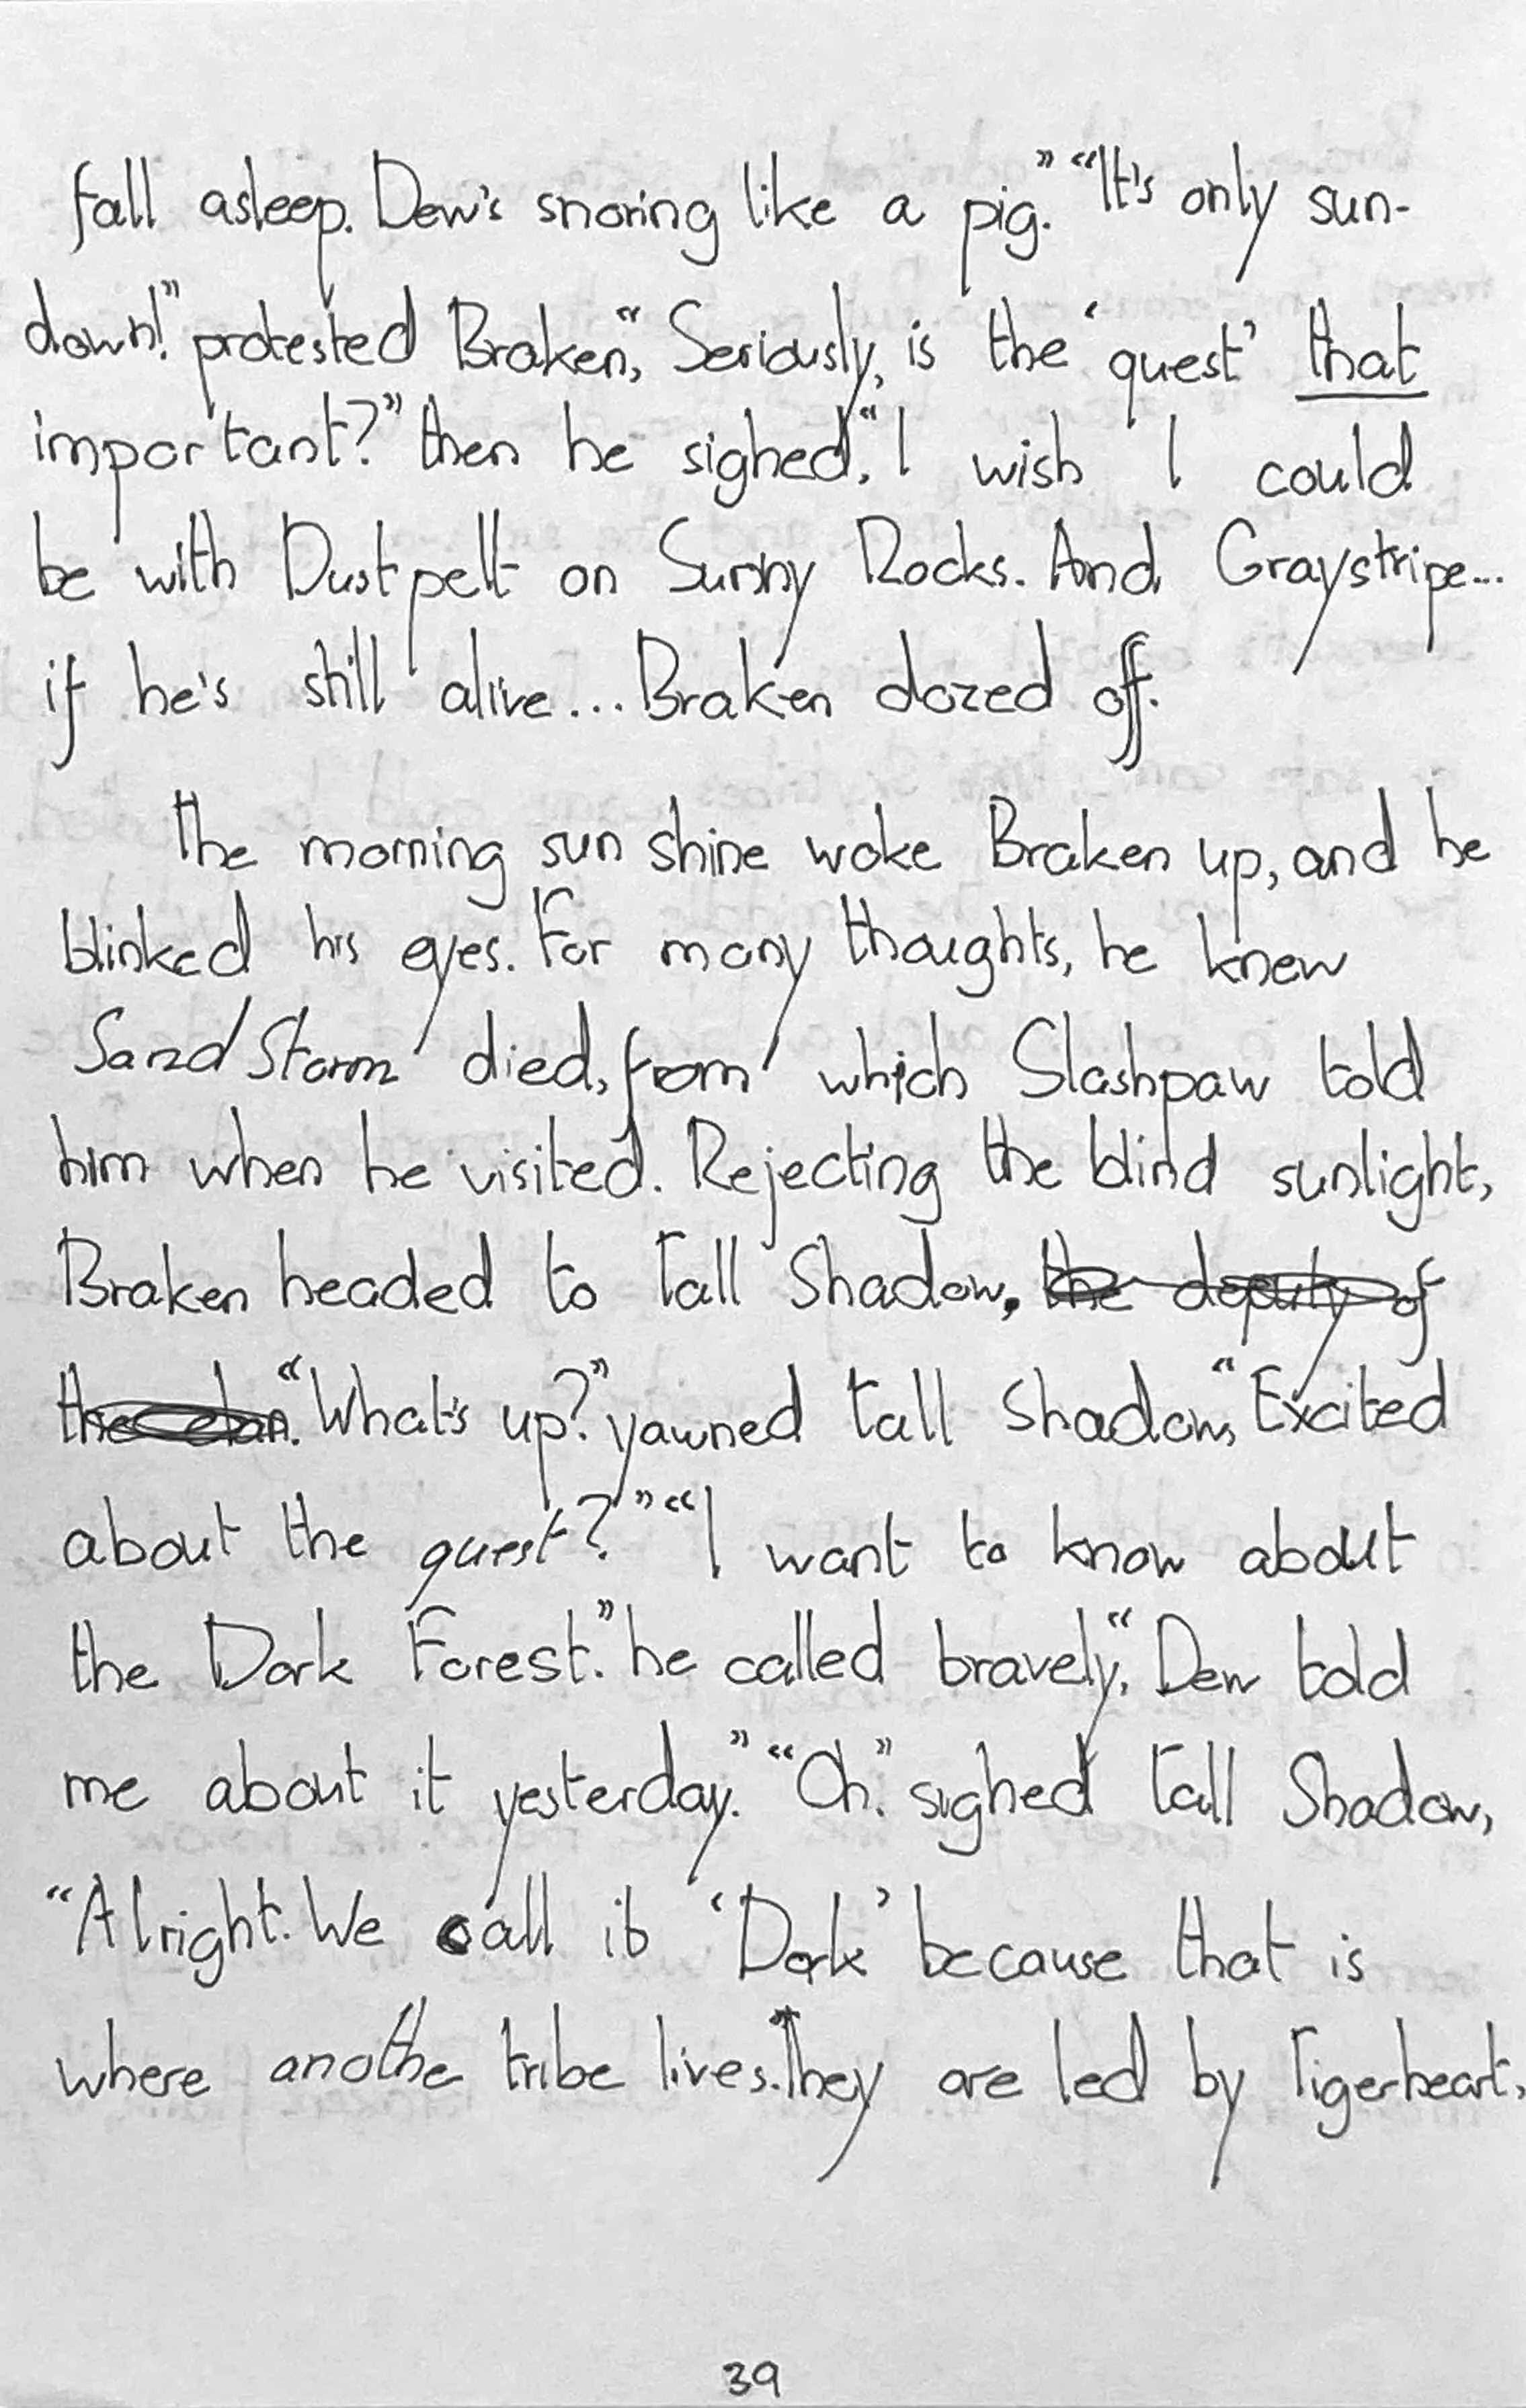 fall asleep. Dew's snoring like a pig." "It's only sun-
down!" protested Braken, "Seriously, is the 'quest' that
important?" then he sighed, "I wish I could
be with Dustpelt on Sunny Rocks. And Graystripe...
if he's still alive... Braken dozed off.
The morning sun shine woke Braken up, and he
blinked his eyes. For many thoughts, he knew
Sand Storm died, from which Slashpaw told
him when he visited. Rejecting the blind sunlight,
Braken headed to Tall Shadow. the deputy of
the clan. "What's up?" yawned Tall Shadow, "Excited
about the quest?" "I want to know about
the Dark Forest." he called bravely, "Dew told
me about it yesterday." "Oh." sighed Tall Shadow,
"Alright. We call it 'Dark' because that is
where anothe tribe lives. They are led by Tigerheart,
39